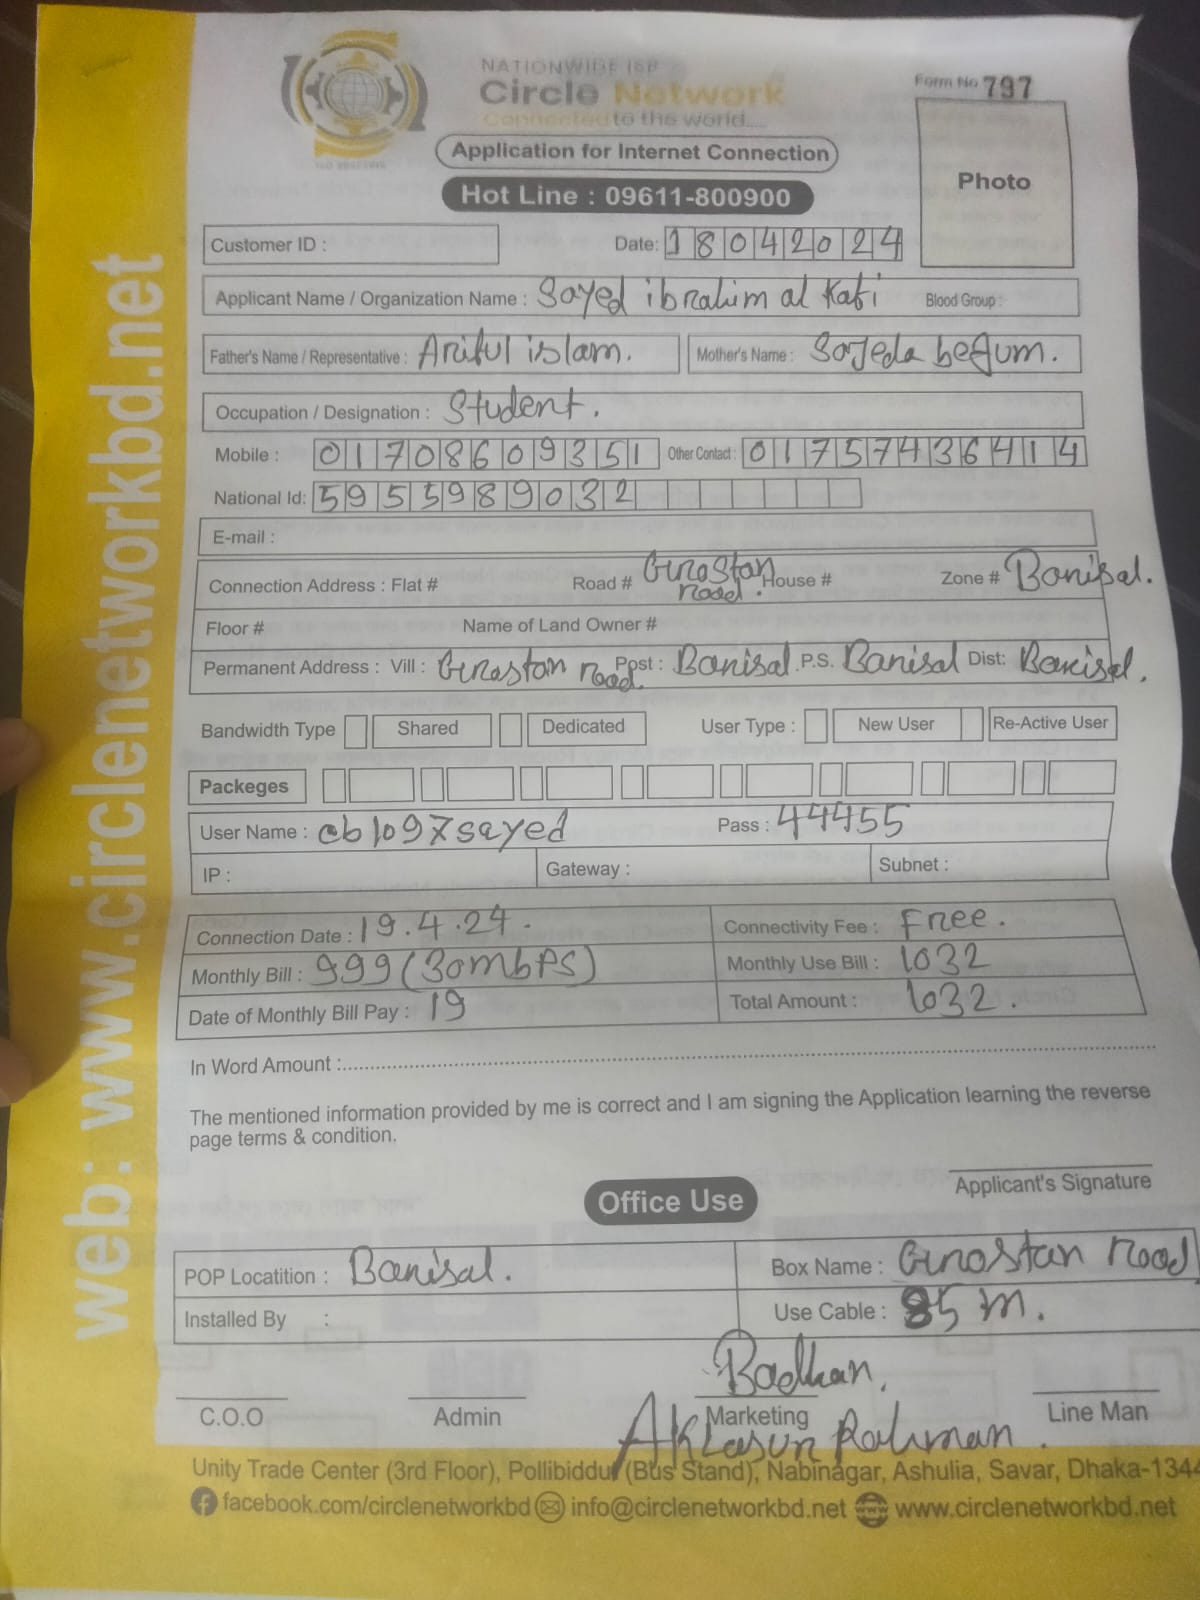 NATIONWIDE ISP
Circle Network
Connected to the world.....
Form No 797
Application for Internet Connection
Photo
Hot Line : 09611-800900
Customer ID :
Date: 18042024
Applicant Name / Organization Name : Sayed ibrahim al Kafi Blood Group :
Father's Name / Representative : Ariful islam. Mother's Name : Sajeda begum.
Occupation / Designation : Student.
Mobile : 01708609351 Other Contact : 01757436414
National Id: 5955989032
E-mail :
Connection Address : Flat # Road # Grostan road. House # Zone # Barisal.
Floor # Name of Land Owner #
Permanent Address : Vill : Grastan road. Post : Barisal. P.S. Barisal Dist: Barisal.
Bandwidth Type Shared Dedicated User Type : New User Re-Active User
Packeges
User Name : cb1097sayed Pass : 44455
IP : Gateway : Subnet :
Connection Date : 19.4.24. Connectivity Fee : Free.
Monthly Bill : 999 (30mbps) Monthly Use Bill : 1032
Date of Monthly Bill Pay : 19 Total Amount : 1032.
In Word Amount :
The mentioned information provided by me is correct and I am signing the Application learning the reverse
page terms & condition.
Applicant's Signature
Office Use
POP Locatition : Barisal. Box Name : Grostan road
Installed By : Use Cable : 85 m.
Badhan.
C.O.O Admin Marketing Line Man
Rahman.
Unity Trade Center (3rd Floor), Pollibiddut (Bus Stand), Nabinagar, Ashulia, Savar, Dhaka-1344
facebook.com/circlenetworkbd info@circlenetworkbd.net www.circlenetworkbd.net
web: www.circlenetworkbd.net